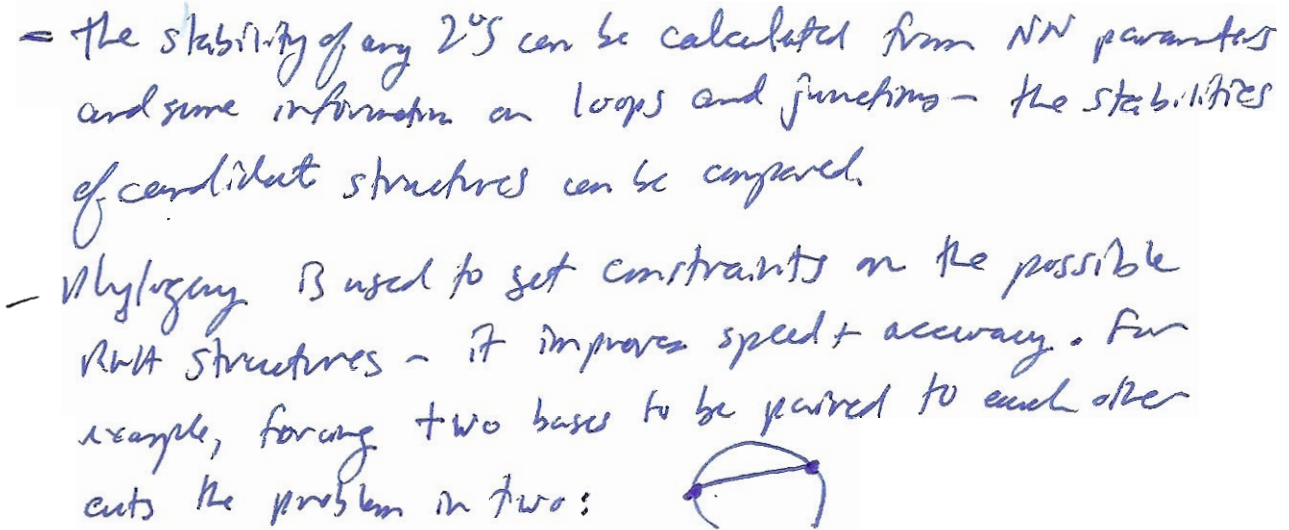 - the stability of any 2°S can be calculated from NN parameters
and some information on loops and junctions - the stabilities
of candidate structures can be compared.
- Phylogeny is used to set constraints on the possible
RNA structures - it improves speed + accuracy. For
example, forcing two bases to be paired to each other
cuts the problem in two: